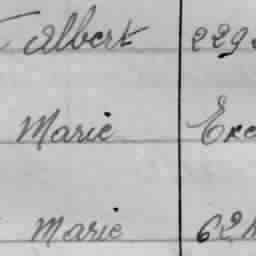 Albert 229
Marie Exe
Marie 62